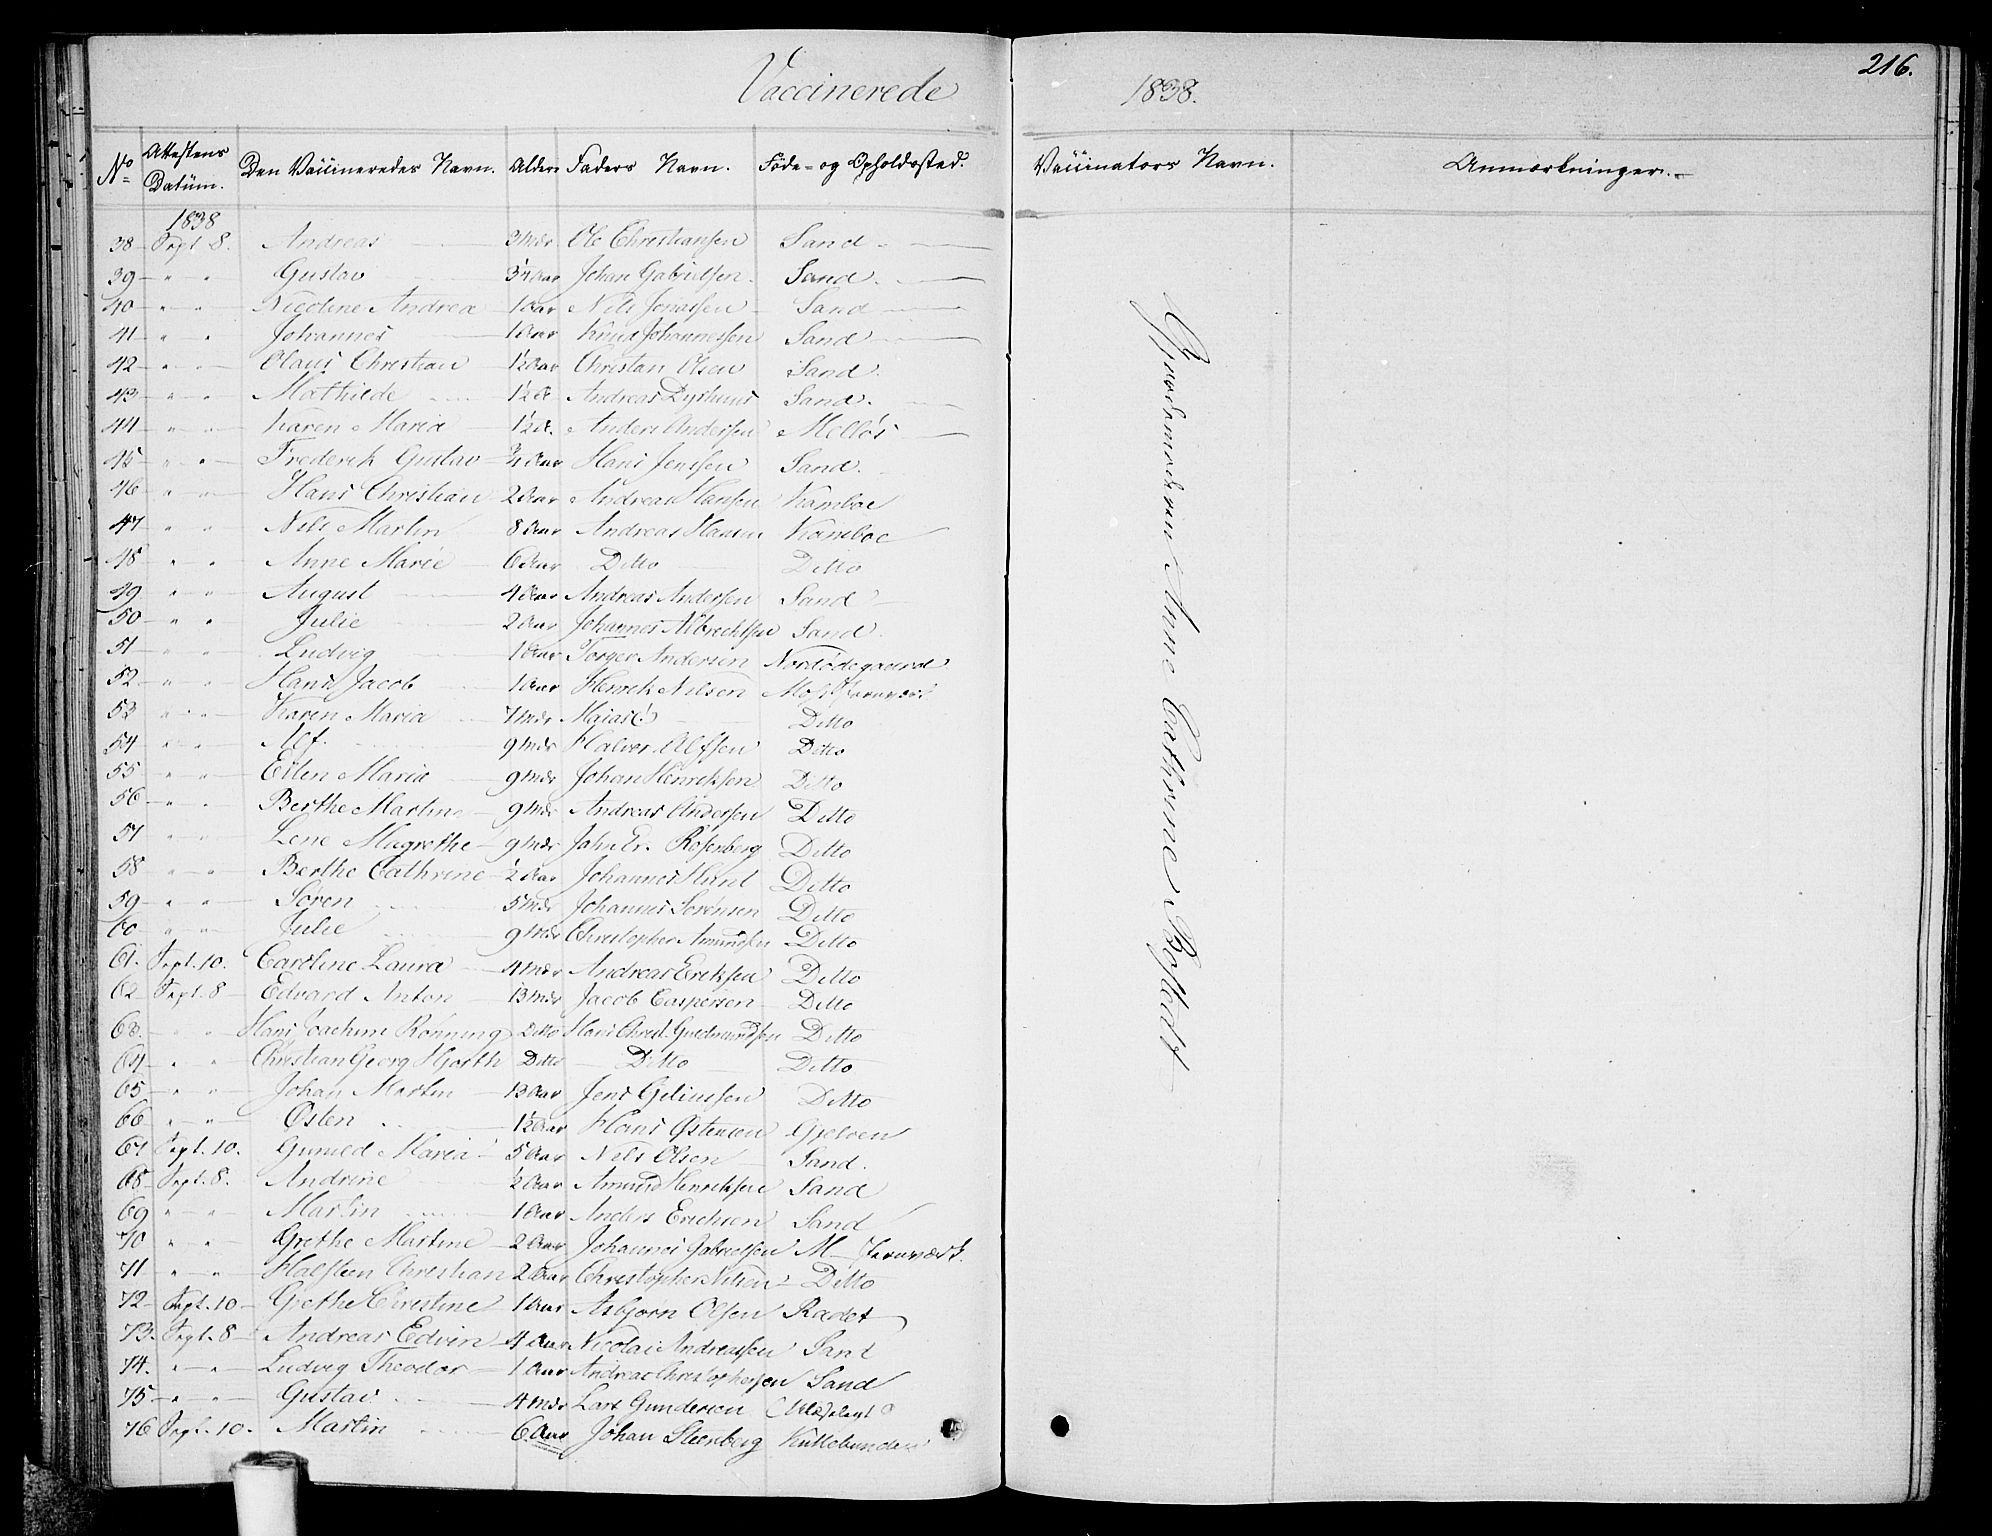 216.
Vaccinerede 1838.
No Attestens Datüm. Den Vaccineredes Navn. Alder Faders Navn. Føde- og Opholdssted. Vaccinators Navn. Anmærkninger.
1838
38 Sept. 8. Andreas 3 Mdr Ole Christiansen Sand
39 " " Gustav Aar Johan Gabrielsen Sand
40 " " Nicoline Andrea 1 Aar Nils Sand
41 " " Johannes 1 Aar Knud Johannessen Sand
42 " " Olaus Christian 1½ Aar Christian Olsen Sand
43 " " Mathilde 1½ A Andreas Sand.
44 " " Karen Maria 1½ A. Anders Andersen Melløs
45 " " Frederik Gustav Aar Hans Jensen Sand.
46 " " Hans Christian 2 Aar Andreas Hansen Kamboe
47 " " Nils Martin 8 Aar Andreas Hansen Kamboe
48 " " Anne Marie 6 Aar Ditto Ditto
49 " " August 4 Aar Andreas Andersen Sand
50 " " Julie 2 Aar Johannes Albrechtsen Sand
51 " " Ludvig 1 Aar Torger Andersen Nordødegaard
52 " " Hans Jacob 1 Aar Henrik Nilsen Moss Jernværk
53 " " Karen Maria 7 Mdr Ditto
54 " " Alf 9 Mdr Halvor Alfsen Ditto
55 " " Ellen Maria 9 Mdr Johan Henriksen Ditto
56 " " Berthe Martine 9 Mdr Andreas Andersen Ditto
57 " " Lene Magrethe 9 Mdr Jahn Er. Rosenberg Ditto
58 " " Berthe Cathrine ½ Aar Johannes Ditto
59 " " Søren 5 Mdr Johannes Sørensen Ditto
60 " " Julie 9 Mdr Christopher Amundsen Ditto
61. Sept. 10. Caroline Laura 4 Mdr Andreas Eriksen Ditto
62 Sept. 8 Edvard Anton 13 Mdr Jacob Caspersen Ditto
63. " " Hans Joachim Rønning Ditto Hans Christ. Gudmundsen Ditto
64 " " Christian Georg Hjorth Ditto Ditto Ditto
65 " " Johan Martin 13 Aar Jens Ditto
66 " " Østen 1½ Aar Hans Østensen
67 Sept. 10. Gunild Maria 5 Aar Nils Olsen Sand.
68 Sept. 8. Andrine ½ Aar Amund Henriksen Sand
69 " " Martin 1 Aar Anders Erichsen Sand
70 " " Grethe Martine 2 Aar Johannes Gabrielsen M Jernværk.
71 " " Halsteen Christian 2 Aar Christopher Nilsen Ditto
72 Sept. 10 Grethe Christine 1 Aar Asbjørn Olsen Radet
73. Sept. 8 Andreas Edvin 4 Aar Nicolai Andreassen Sand
74. " " Ludvig Theodor 1 Aar Andreas Christophersen Sand
75 " " Gustav 4 Mdr Lars Gundersen
76 Sept. 10. Martin 6 Aar Johan Steenberg
Gjordemoderen Anne Cathrine